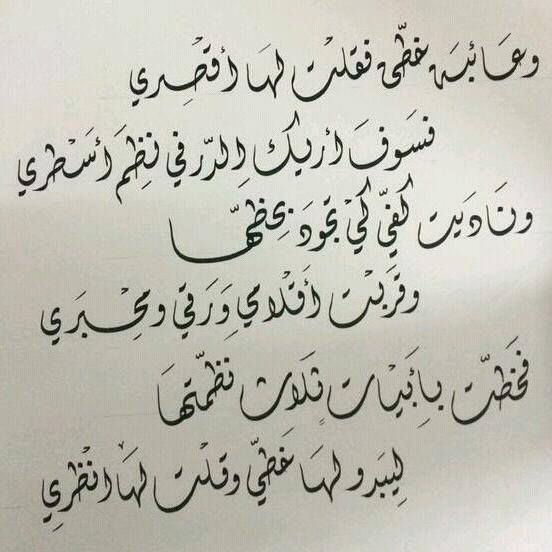 وعائبة خطّي فقلت لها أقصِري
فسَوفَ أريكِ الدّر في نظِم أسَطري
ونَاديت كفيّ كيْ تجودَ بخطهّا
وقربْت أقلامي وَرقي ومحْبَري
فخَطّت بأبيات ثلاث نظمتها
ليبدو لها خطيّ وقلت لها انظرِي